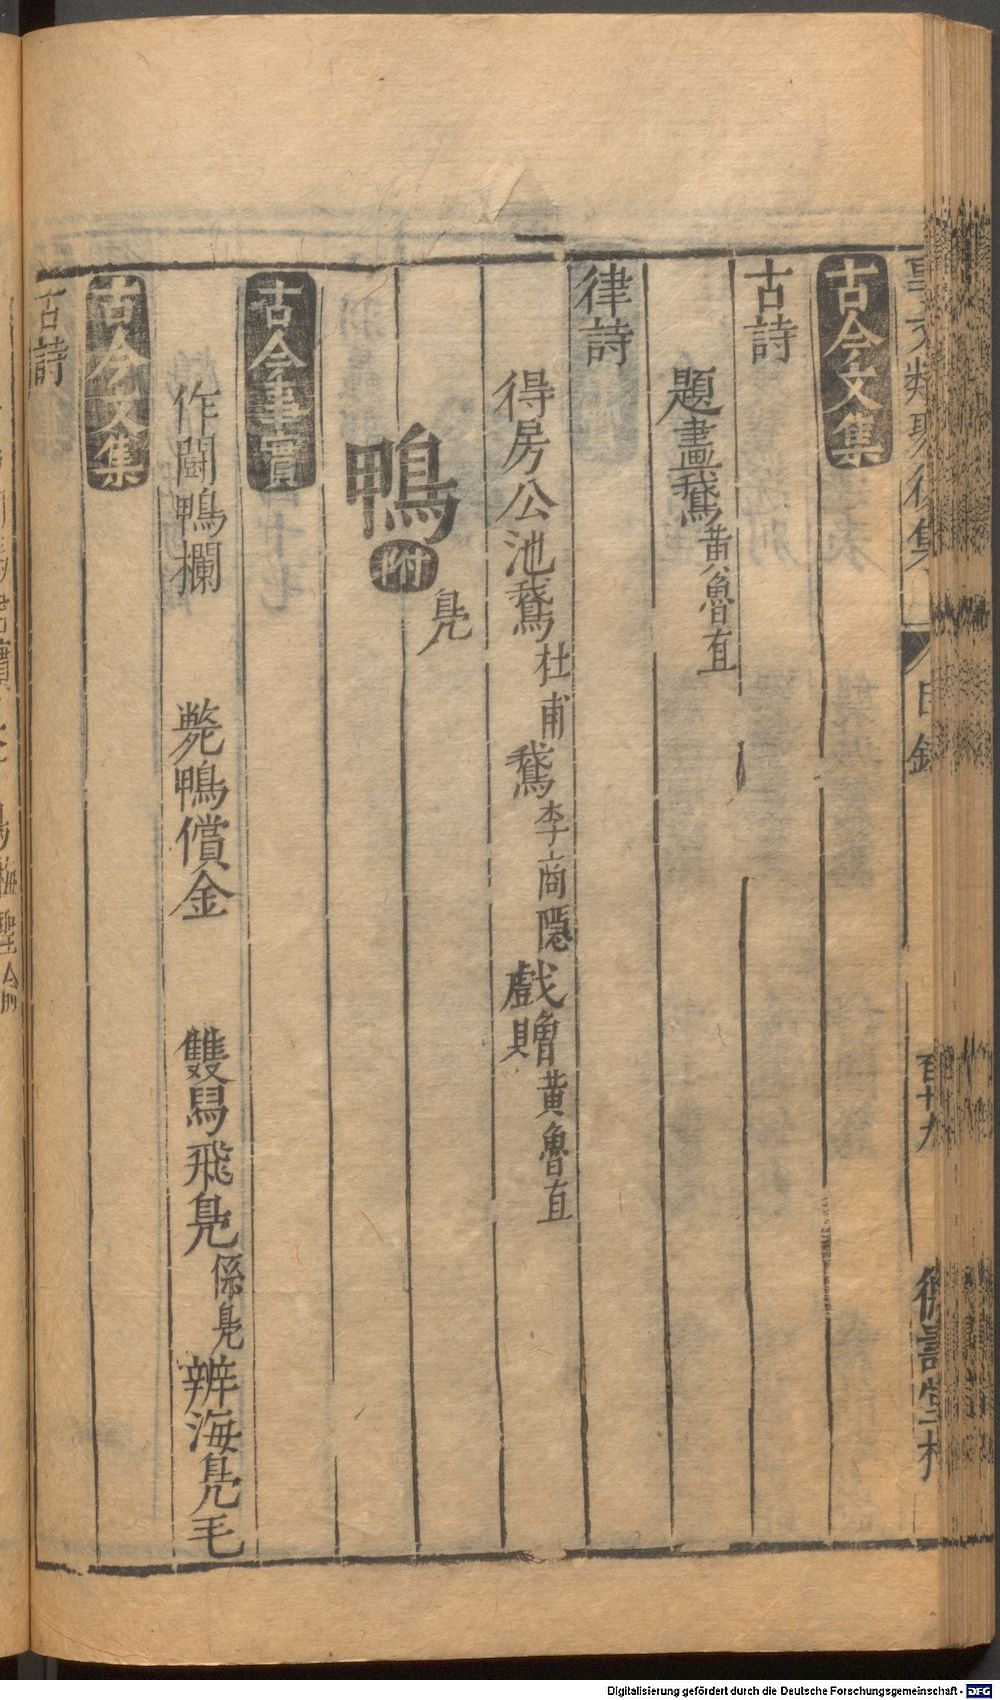 事文類聚後集 目錄 百廿九
古今文集
古詩
題畫鵞 黃魯直
律詩
得房公池鵞 杜甫 鵞 李商隱 戲贈 黃魯直
鴨 附 鳧
古今事實
作鬬鴨欄 斃鴨償金 雙舄飛鳧 係鳧 辨海鳧毛
古今文集
古詩
Digitalisierung gefördert durch die Deutsche Forschungsgemeinschaft - DFG